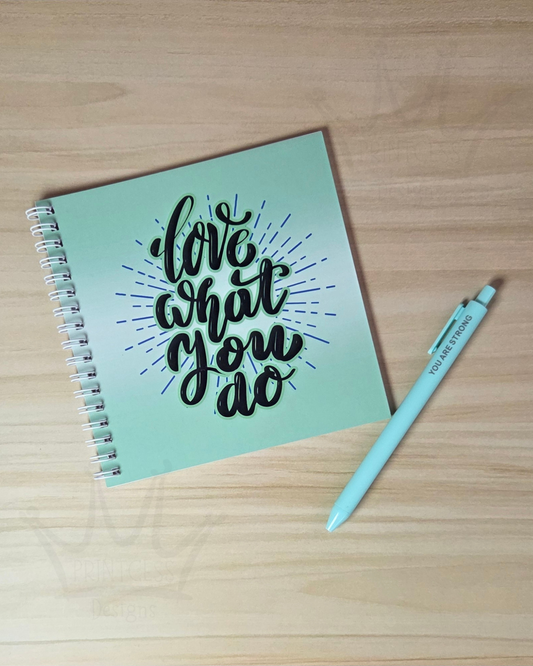 love
what
you
do
YOU ARE STRONG
Designs